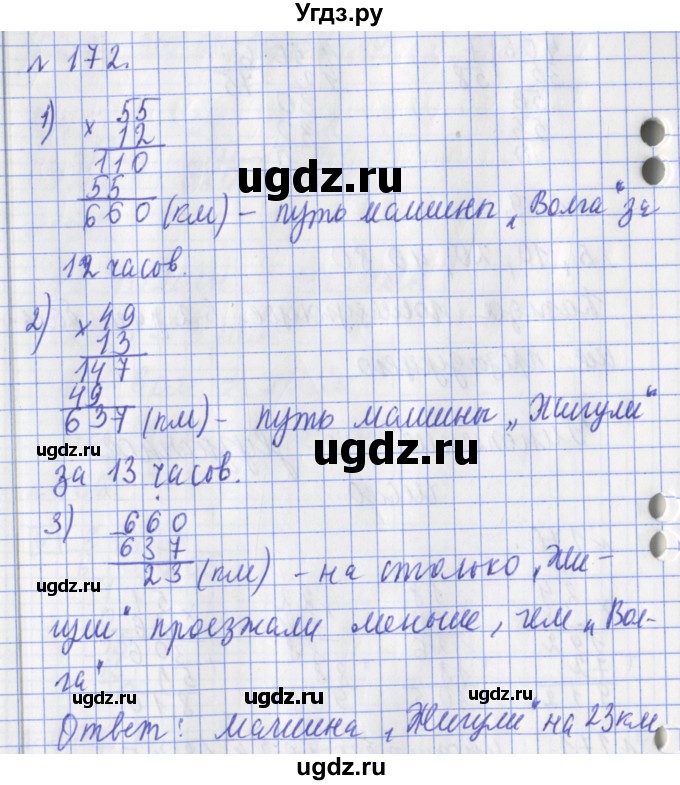 Угдз.ру
№ 172.
1) 55
× 12
110
55
660 (км) – путь машины „Волга“ за
12 часов.
2) × 49
13
147
49
637 (км) – путь машины „Жигули“
за 13 часов.
3) 660
637
23 (км) – на столько „Жи-
гули“ проезжали меньше, чем „Вол-
га“
Ответ: машина „Жигули“ на 23 км
ugdz.ru
ugdz.ru
ugdz.ru
ugdz.ru
ugdz.ru
ugdz.ru
ugdz.ru
ugdz.ru
ugdz.ru
ugdz.ru
ugdz.ru
ugdz.ru